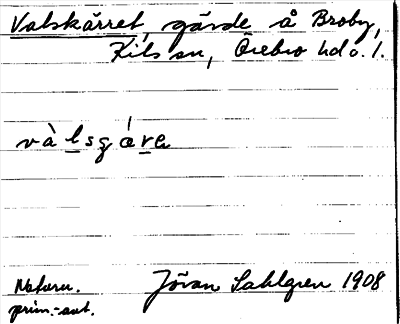 Valskärret, gärde å Broby,
Kils sn, Örebro hd o. l.
và lsgáre
Naturn.
prim.-sat.
Jöran Sahlgren 1908